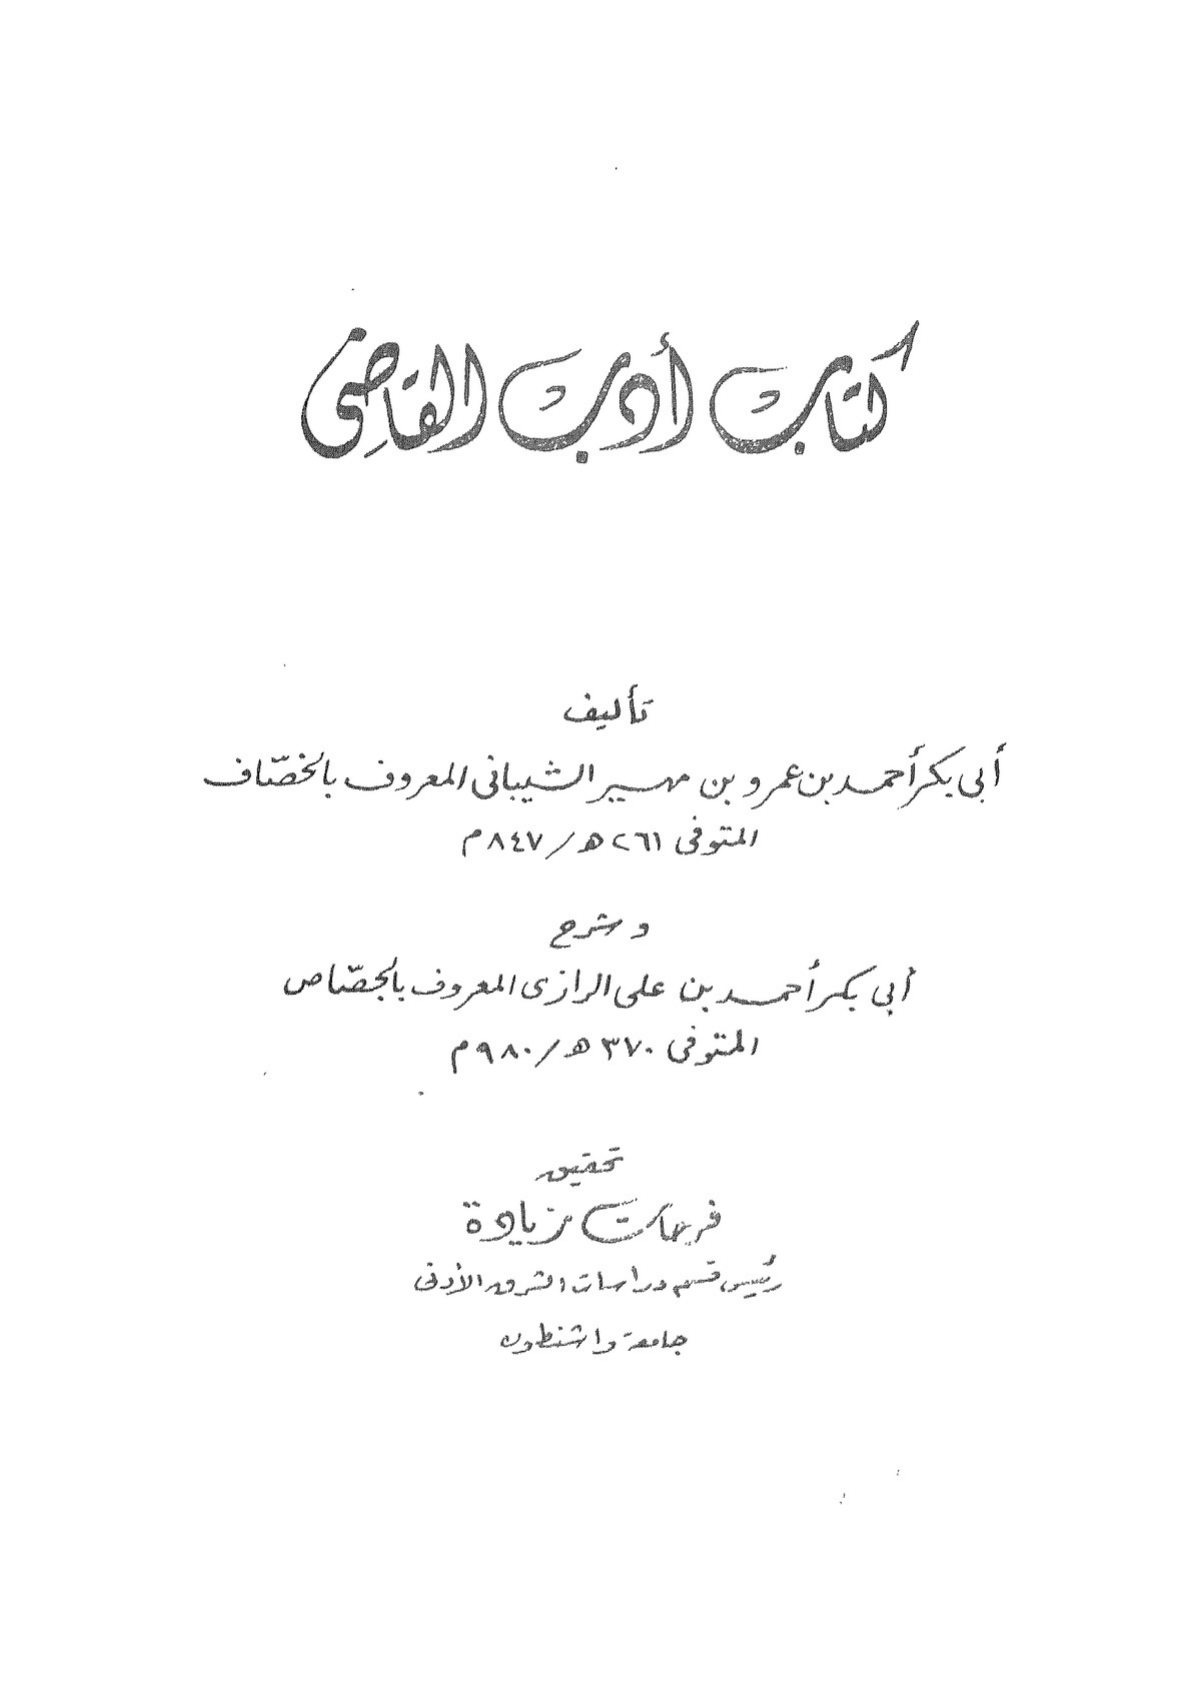 كتاب أدب القاضى
تأليف
أبى بكر أحمد بن عمرو بن مهير الشيبانى المعروف بالخصّاف
المتوفى ٢٦١ هـ / ٨٤٧ م
وشرح
أبى بكر أحمد بن على الرازى المعروف بالجصّاص
المتوفى ٣٧٠ هـ / ٩٨٠ م
تحقيق
فرحات زيادة
رئيس قسم دراسات الشرق الأدنى
جامعة واشنطون